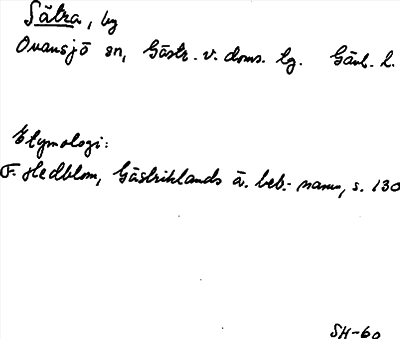 Sätra, by
Ovansjö sn, Gästr. v. doms. tg. Gävl. l.
Etymologi:
F. Hedblom, Gästriklands ä. beb.- namn, s. 130
SH-60